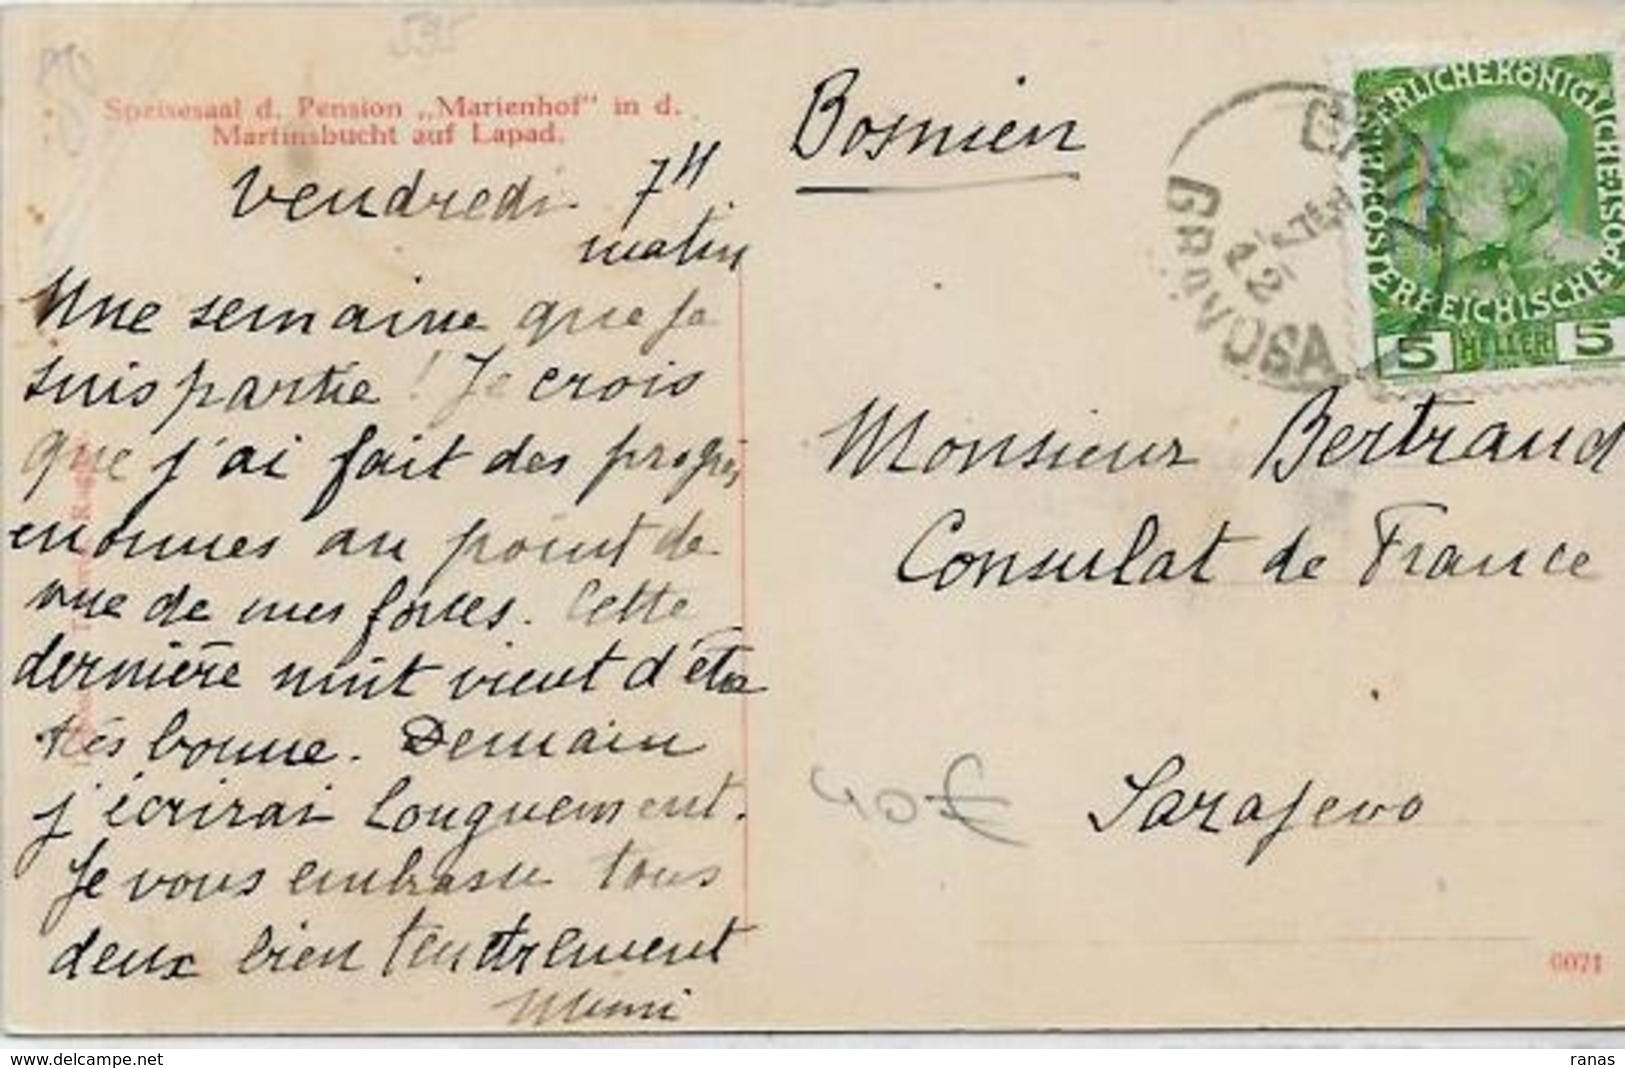 Speisesaal d. Pension „Marienhof" in d.
Martinsbucht auf Lapad.
Vendredi 7H
matin
Une semaine que je
suis partie ! Je crois
que j'ai fait des progrès
enormes au point de
vue de mes forces. Cette
dernière nuit vient d'être
très bonne. Demain
j'écrirai longuement.
Je vous embrasse tous
deux bien tendrement
Mimi
Bosnien
GRAVOSA
KAISERLICHEKÖNIGLICHE
ÖSTERREICHISCHE POST
5 HELLER 5
Monsieur Bertrand
Consulat de France
Sarajevo
40€
6071
www.delcampe.net
ranas